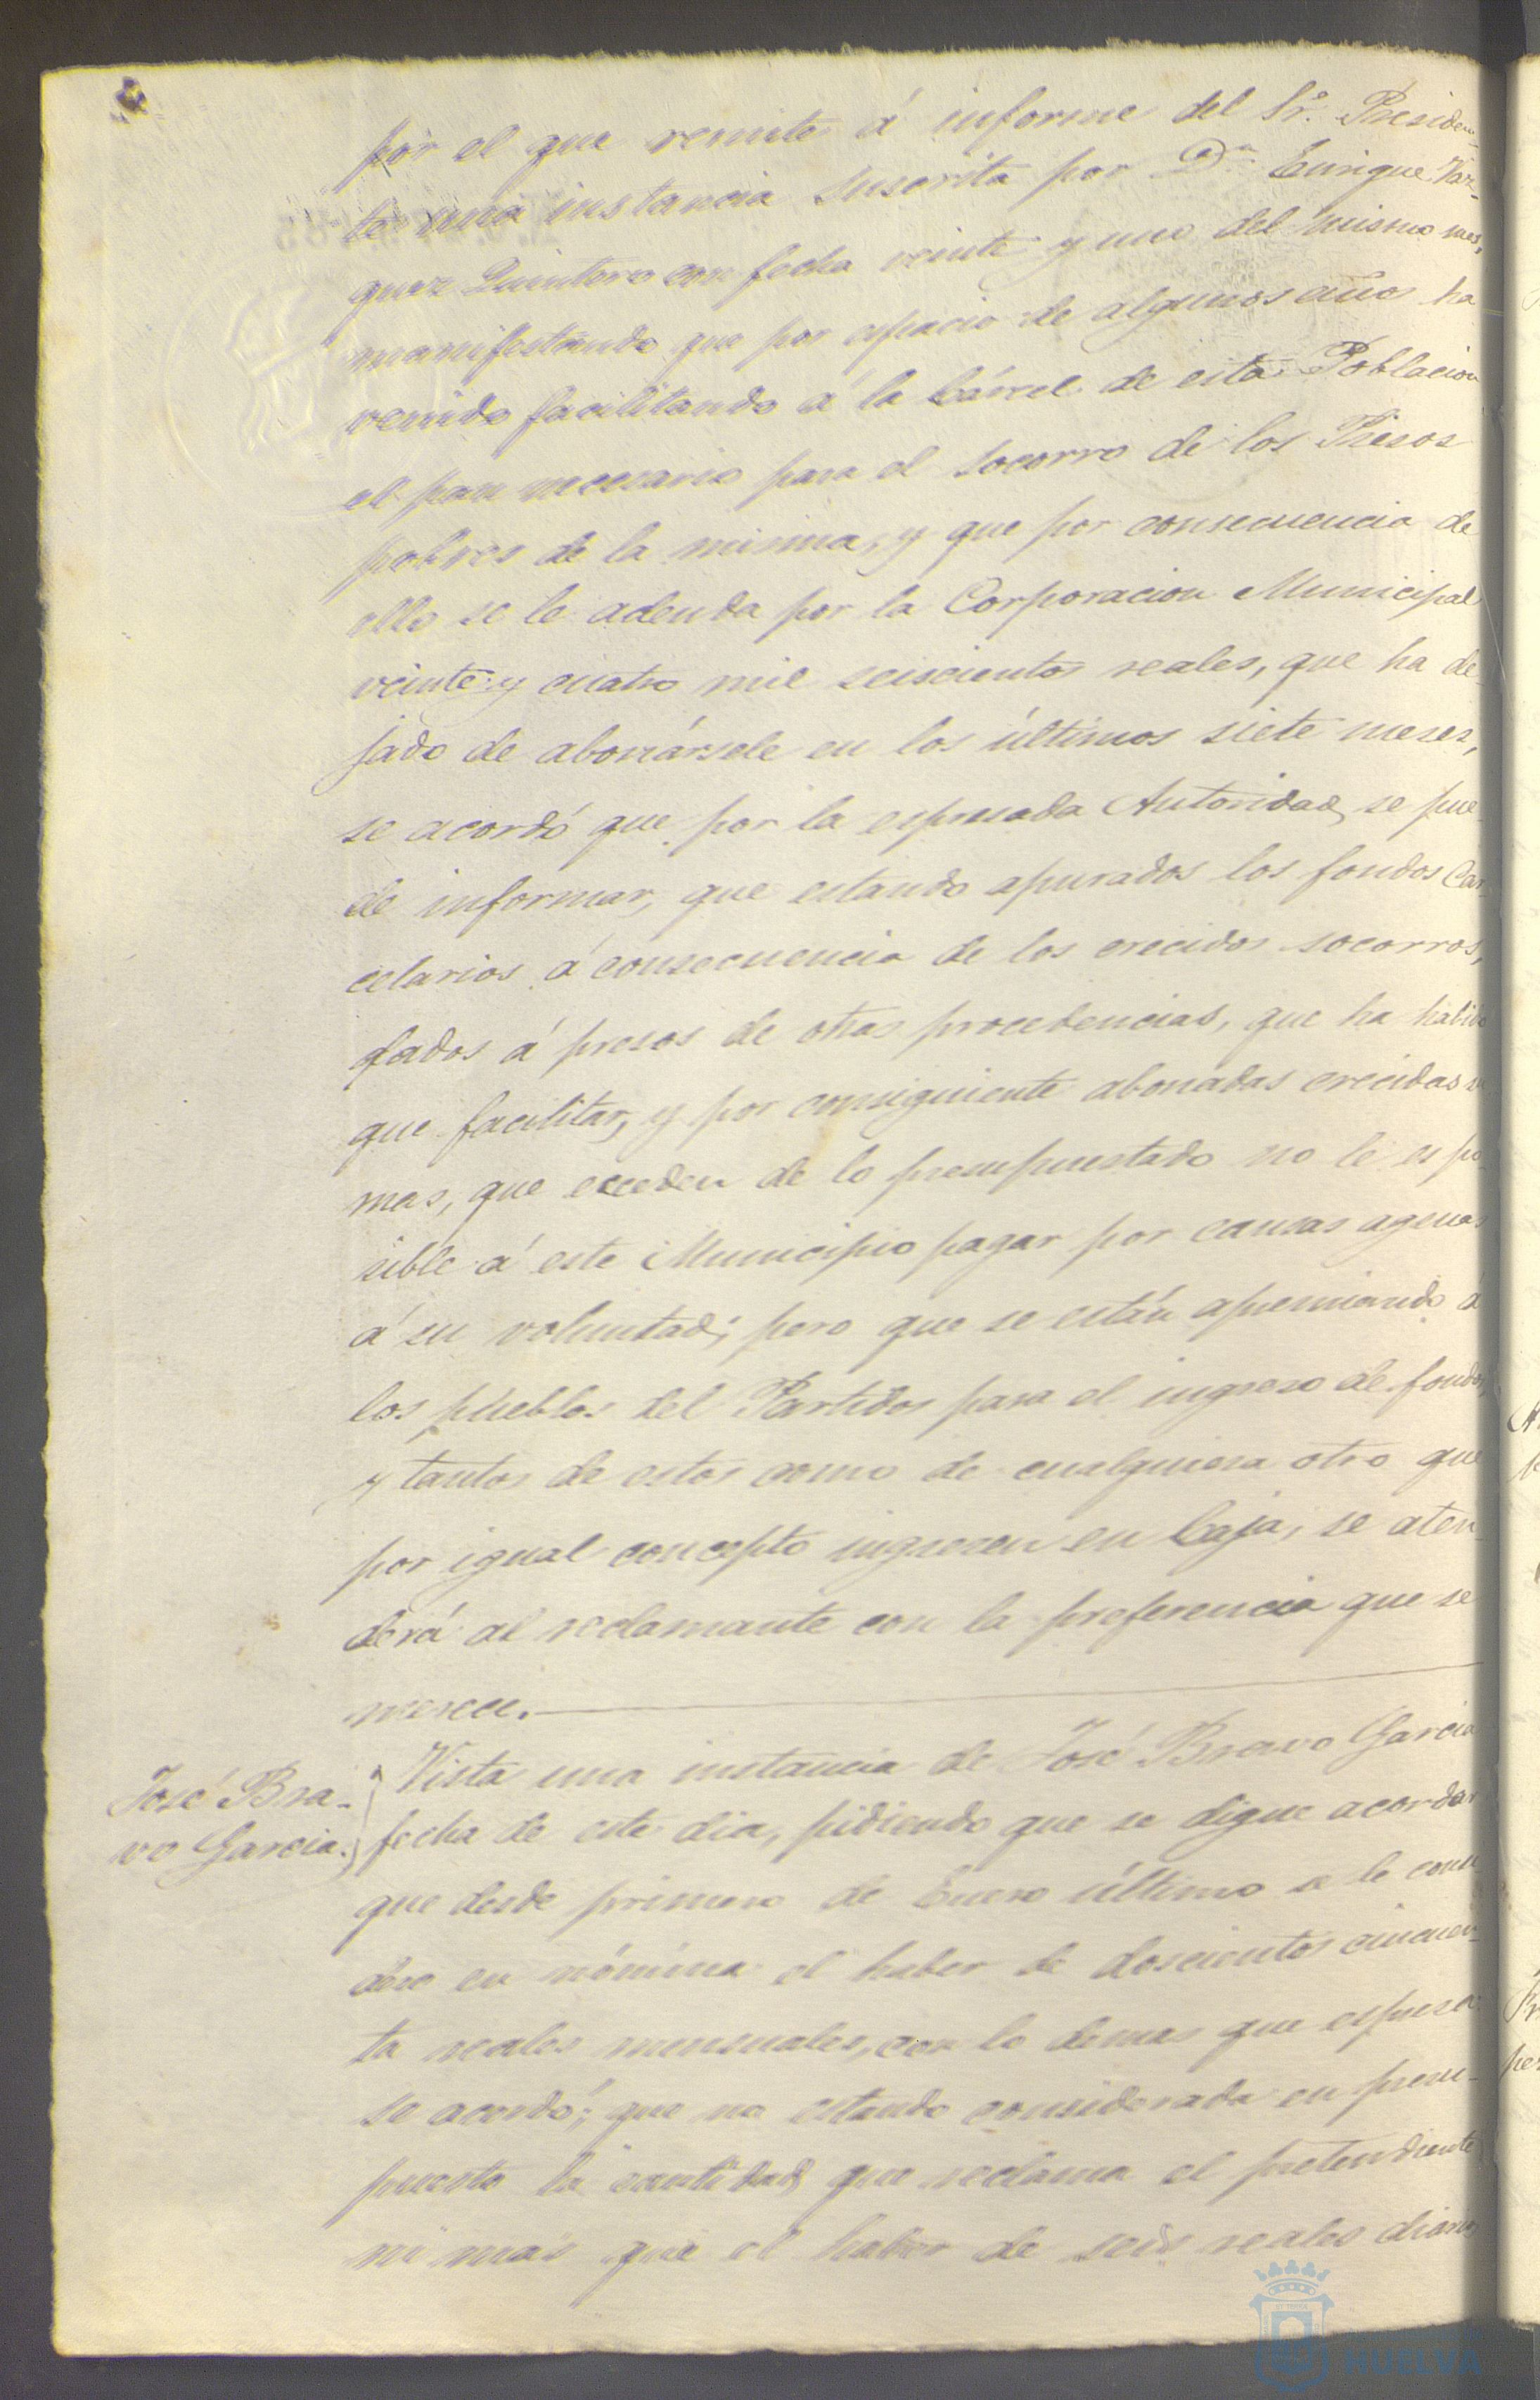 por el que remite á informe del Sr. Presiden-
te una instancia suscrita por Dn. Enrique Vaz-
quez Quintero con fecha veinte y uno del mismo mes,
manifestando que por espacio de algunos años ha
venido facilitando á la Cárcel de esta Poblacion
el pan necesario para el socorro de los Presos
pobres de la misma, y que por consecuencia de
ello se le adeuda por la Corporacion Municipal
veinte y cuatro mil seiscientos reales, que ha de-
jado de abonársele en los últimos siete meses,
se acordó que por la espresada Autoridad, se pue-
de informar, que estando apurados los fondos Car-
celarios á consecuencia de los crecidos socorros,
dados á presos de otras procedencias, que ha habido
que facilitar, y por consiguiente abonadas crecidas su
mas, que esceden de lo presupuestado no le es po-
sible á este Municipio pagar por causas agenas
á su voluntad; pero que se están apremiando á
los pueblos del Partido para el ingreso de fondos,
y tantos de estos como de cualquiera otro que
por igual concepto ingresen en Caja, se aten-
derá al reclamante con la preferencia que se
merece.
José Bra-
vo Garcia.
Vista una instancia de José Bravo Garcia
fecha de este dia, pidiendo que se digne acordar
que desde primero de Enero último se le consi
dere en nómina el haber de doscientos cincuen-
ta reales mensuales, con lo demas que espresa
se acordó; que no estando considerada en presu-
puesto la cantidad que reclama el pretendiente
ni mas que el haber de seis reales diarios
HUELVA